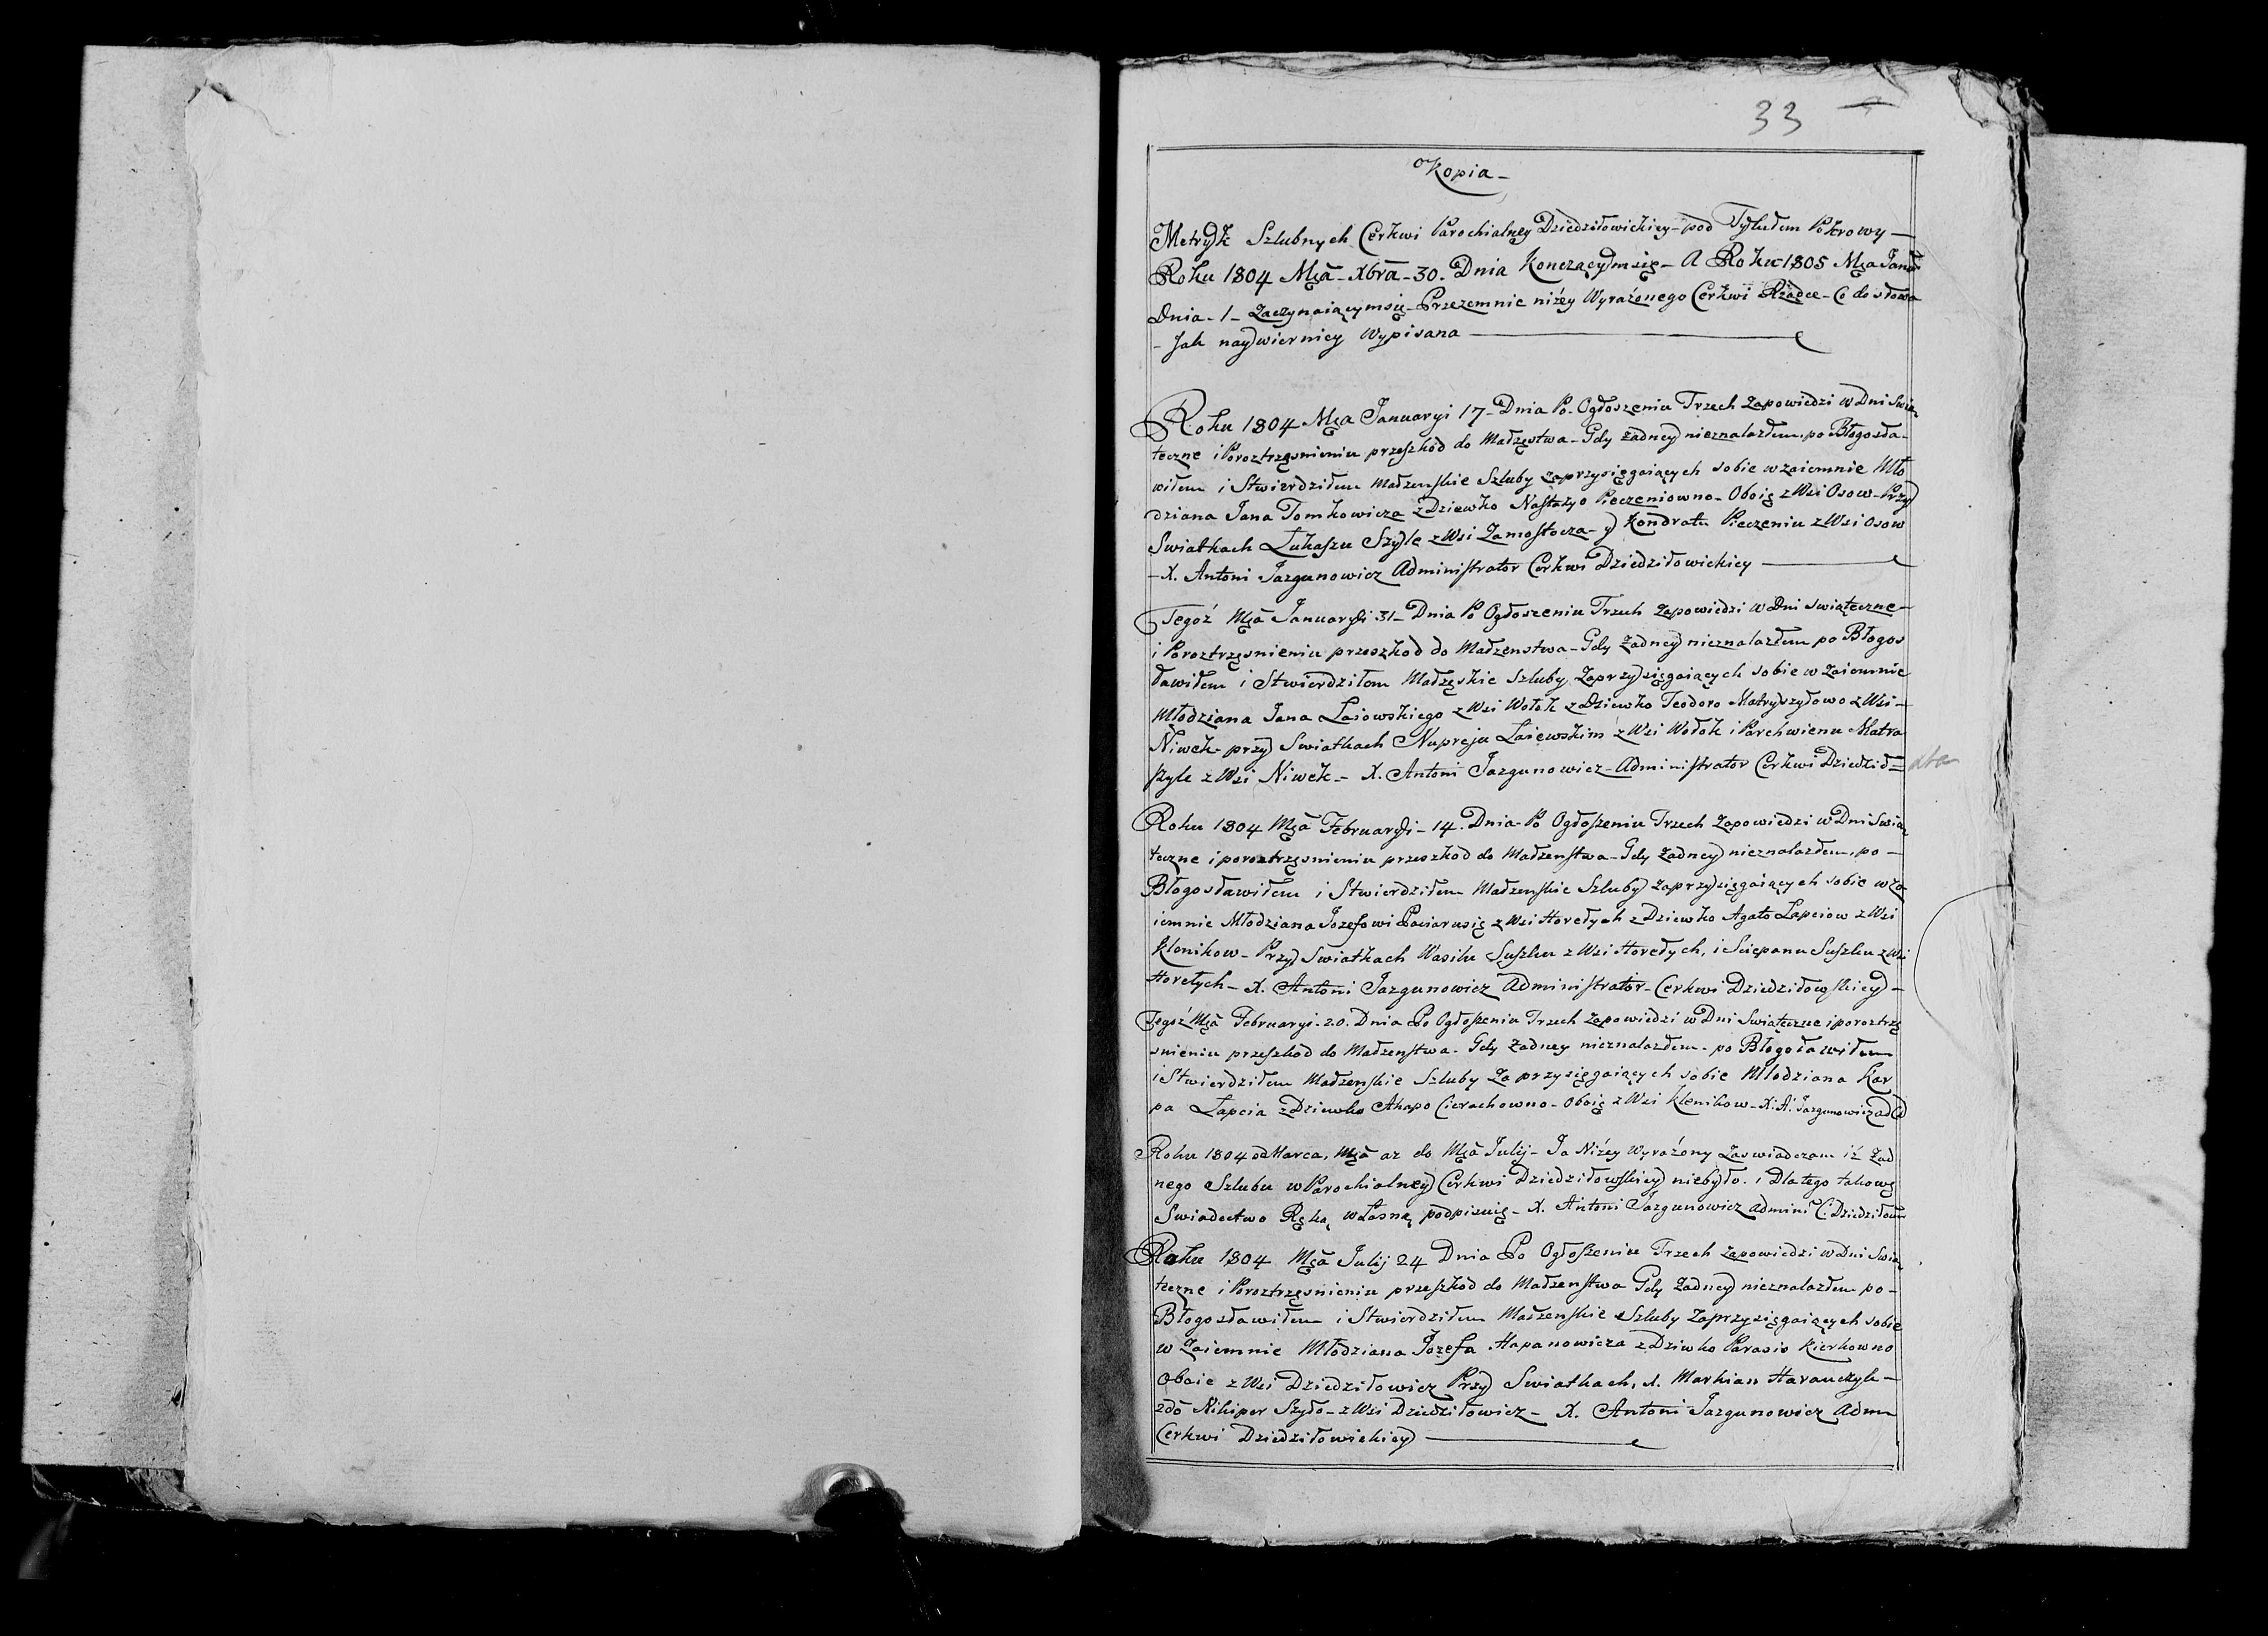 33
Kopia
Metryk Szlubnych Cerkwi Parochialney Dziedziłowickiey pod Tytułem Pokrowy
Roku 1804 Mca Xbra 30. Dnia Konczącym się A Roku 1805 Mca Janu
Dnia 1 Zaczynaiącymsię Przezemnie niżey Wyrażonego Cerkwi Rządce Co do słowa
Jak naywierniey Wypisana
Roku 1804 Mca Januaryi 17 Dnia Po Ogłoszeniu Trzech Zapowiedzi w Dni Swią
teczne i Poroztrząsnieniu przeszkod do Małzęstwa Gdy żadney nieznalazłem, po Błogosła
wiłem i Stwierdziłem Małzenskie Szluby zaprzysięgaiących sobie wzaiemnie Mło
dziana Jana Tomkowicza z Dziewko Nastazyo Pieczeniowno Oboie z Wsi Osow Przy
Swiatkach Łukaszu Szyle z Wsi Zamostocza y Kondratu Pieczeniu z Wsi Osow
X. Antoni Jazgunowicz Administrator Cerkwi Dziedziłowickiey
Tegoż Mca Januaryi 31 Dnia Po Ogłoszeniu Trzech Zapowiedzi w Dni swiąteczne
i Poroztrzęsnieniu przeszkod do Małzenstwa Gdy żadney nieznalazłem po Błogos
ławiłem i Stwierdziłem Małzęskie Szluby Zaprzysięgaiących sobie wzaiemnie
Młodziana Jana Łaiowskiego z Wsi Wołok z Dziewko Teodoro Matryszyłowo z Wsi
Niwek przy Swiatkach Nupreju Łaiewskim z Wsi Wołok i Parchwienu Matra
szyle z Wsi Niwek X. Antoni Jazgunowicz Administrator Cerkwi Dziedził
Roku 1804 Mca Februaryi 14. Dnia Po Ogłoszeniu Trzech Zapowiedzi w Dni Swią
teczne i poroztrzęsnieniu przeszkod do Małzenstwa Gdy żadney nieznalazłem, po
Błogosławiłem i Stwierdziłem Małzenskie Szluby zaprzysięgaiących sobie wza
iemnie Młodziana Jozefowi z Wsi Horełych z Dziewko Agato Łapciow z Wsi
Klonikow Przy Swiatkach Wasilu Suszku z Wsi Horełych, i Sciepanu Suszku z Wsi
Horełych X. Antoni Jazgunowicz Administrator Cerkwi Dziedziłowskiey
Tegoż Mca Februaryi 20. Dnia Po Ogłoszeniu Trzech Zapowiedzi w Dni Swiąteczne i poroztrzę
snieniu przeszkod do Małzenstwa. Gdy żadney nieznalazłem po Błogoławiłem
i Stwierdziłem Małzenskie Szluby Zaprzysięgaiących sobie Młodziana Kar
pa Łapcia z Dziewko Ahapo Cierachowno oboie z Wsi Klenikow X: A: Jazgunowicz
Roku 1804 od Marca, Mca az do Mca Julij Ja Niżey Wyrażony Zaswiadczam iż żad
nego Szlubu w Parochialney Cerkwi Dziedziłowskiey niebyło. i Dlatego takowe
Swiadectwo Ręką własną podpisuię X. Antoni Jazgunowicz Admini C. Dziedziłow
Roku 1804 Mca Julij 24 Dnia Po Ogłoszeniu Trzech Zapowiedzi w Dni Swią
teczne i Poroztrzęsnieniu przeszkod do Małzenstwa Gdy żadney nieznalazłem po
Błogosławiłem i Stwierdziłem Małzenskie Szluby Zaprzysięgaiących sobie
w Zaiemnie Młodziana Jozefa Hapanowicza z Dziwko Parasio Kierkowno
Oboie z Wsi Dziedziłowicz Przy Swiatkach, 1. Markian Harauczyk
2do Nikiper Szyło z Wsi Dziedziłowicz X. Antoni Jazgunowicz Admn
Cerkwi Dziedziłowickiey